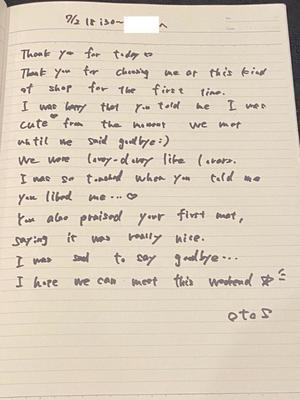 7/2 15:30〜 へ
Thank you for today♡
Thank you for choosing me at this kind
of shop for the first time.
I was happy that you told me I was
cute♡ from the moment we met
until we said goodbye:)
We were lovey-dovey like lovers.
I was so touched when you told me
you liked me...♡
You also praised your first met,
saying it was really nice.
I was sad to say goodbye...
I hope we can meet this weekend ☆